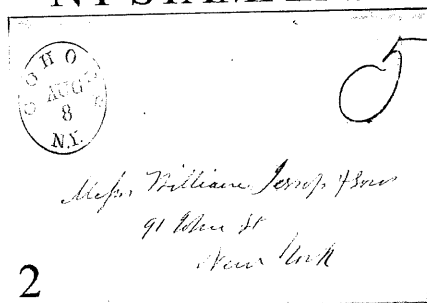 COHOES
AUG
8
N.Y.
5
Messrs William Jessop & Sons
91 John St
New York
2